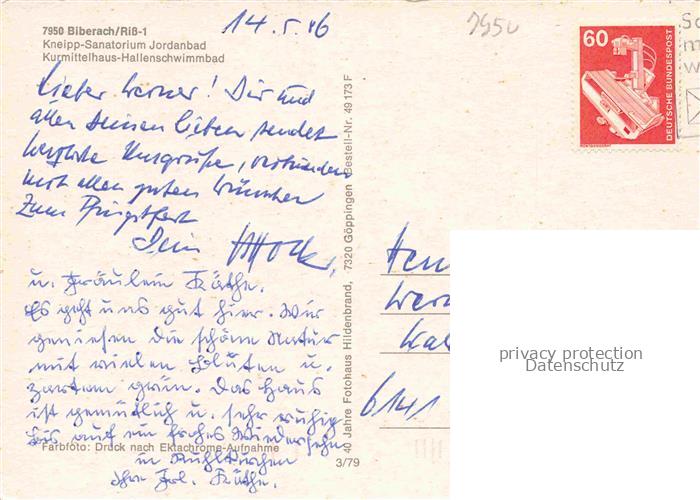 14.5.86
7950
7950 Biberach/Riß-1
Kneipp-Sanatorium Jordanbad
Kurmittelhaus-Hallenschwimmbad
60
DEUTSCHE BUNDESPOST
RÖNTGENGERÄT
Lieber Werner! Dir und
allen Deinen Lieben sendet
herzliche Kurgrüße, verbunden
mit allen guten Wünschen
zum Pfingstfest
Dein
u. Fräulein Käthe.
Es geht uns gut hier. Wir
genießen die schöne Natur
mit vielen Blüten u.
zartem grün. Das Haus
ist gemütlich u. sehr ruhig
Bis auf ein frohes Wiedersehn
in Mühltürchen
Ihre Frl. Käthe.
Farbfoto: Druck nach Ektachrome-Aufnahme
3/79
40 Jahre Fotohaus Hildenbrand, 7320 Göppingen Bestell-Nr. 49 173 F
6141
privacy protection
Datenschutz